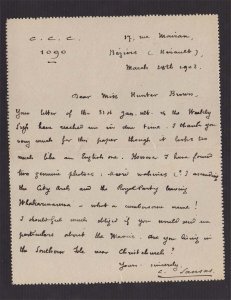 C. C. C.
1090
17, rue Mairan,
Béziers (Hérault),
March 28th 1902.
Dear Miss Hunter Brown,
Your letter of the 31st Jan. ult. & the Weekly
have reached me in due time. I thank you
very much for this paper though it looks too
much like an English one. However I have found
two genuine photos, according
the City and the Royal Party leaving
Whakarewarewa - what a cumbersome name!
I should feel much obliged if you would send me
particulars about the Maoris. Are you living in
the Southern Isle near Christchurch?
Yours sincerely